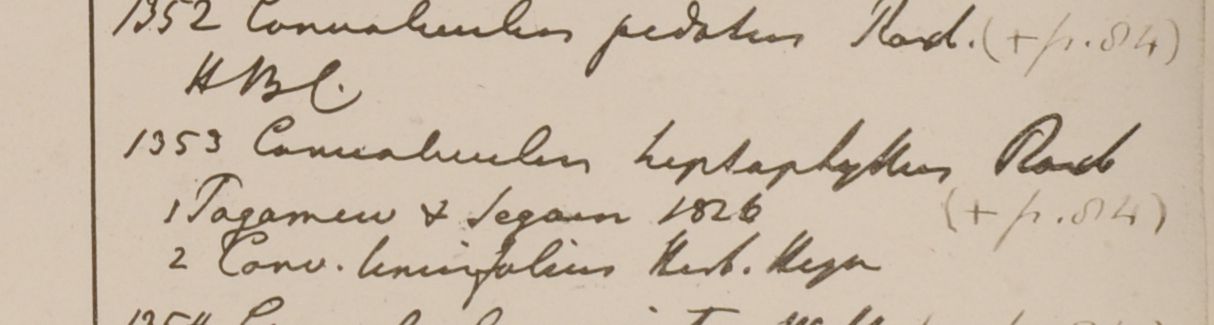 1352 Convolvulus pedatus Roxb. (+ p. 84)
HBC.
1353 Convolvulus heptaphyllus Roxb
1 Tagamew & Segain 1826 (+ p. 84)
2 Conv. linifolius Herb. Heyn
1354